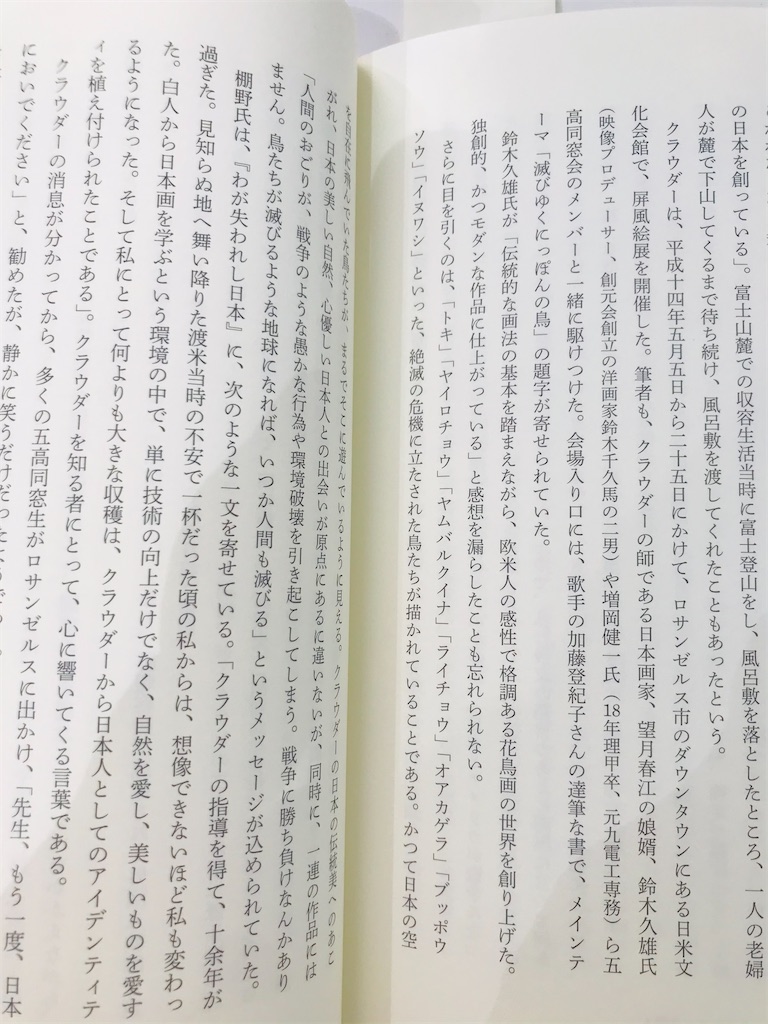 の日本を創っている」。富士山麓での収容生活当時に富士登山をし、風呂敷を落としたところ、一人の老婦
人が麓で下山してくるまで待ち続け、風呂敷を渡してくれたこともあったという。
クラウダーは、平成十四年五月五日から二十五日にかけて、ロサンゼルス市のダウンタウンにある日米文
化会館で、屏風絵展を開催した。筆者も、クラウダーの師である日本画家、望月春江の娘婿、鈴木久雄氏
（映像プロデューサー、創元会創立の洋画家鈴木千久馬の二男）や増岡健一氏（18年理甲卒、元九電工専務）ら五
高同窓会のメンバーと一緒に駆けつけた。会場入り口には、歌手の加藤登紀子さんの達筆な書で、メインテ
ーマ「滅びゆくにっぽんの鳥」の題字が寄せられていた。
鈴木久雄氏が「伝統的な画法の基本を踏まえながら、欧米人の感性で格調ある花鳥画の世界を創り上げた。
独創的、かつモダンな作品に仕上がっている」と感想を漏らしたことも忘れられない。
さらに目を引くのは、「トキ」「ヤイロチョウ」「ヤムバルクイナ」「ライチョウ」「オアカゲラ」「ブッポウ
ソウ」「イヌワシ」といった、絶滅の危機に立たされた鳥たちが描かれていることである。かつて日本の空
を自在に飛んでいた鳥たちが、まるでそこに遊んでいるように見える。クラウダーの日本の伝統美へのあこ
がれ、日本の美しい自然、心優しい日本人との出会いが原点にあるに違いないが、同時に、一連の作品には
「人間のおごりが、戦争のような愚かな行為や環境破壊を引き起こしてしまう。戦争に勝ち負けなんかあり
ません。鳥たちが滅びるような地球になれば、いつか人間も滅びる」というメッセージが込められていた。
棚野氏は、『わが失われし日本』に、次のような一文を寄せている。「クラウダーの指導を得て、十余年が
過ぎた。見知らぬ地へ舞い降りた渡米当時の不安で一杯だった頃の私からは、想像できないほど私も変わっ
た。白人から日本画を学ぶという環境の中で、単に技術の向上だけでなく、自然を愛し、美しいものを愛す
るようになった。そして私にとって何よりも大きな収穫は、クラウダーから日本人としてのアイデンティテ
ィを植え付けられたことである」。クラウダーを知る者にとって、心に響いてくる言葉である。
クラウダーの消息が分かってから、多くの五高同窓生がロサンゼルスに出かけ、「先生、もう一度、日本
においでください」と、勧めたが、静かに笑うだけだったようである。